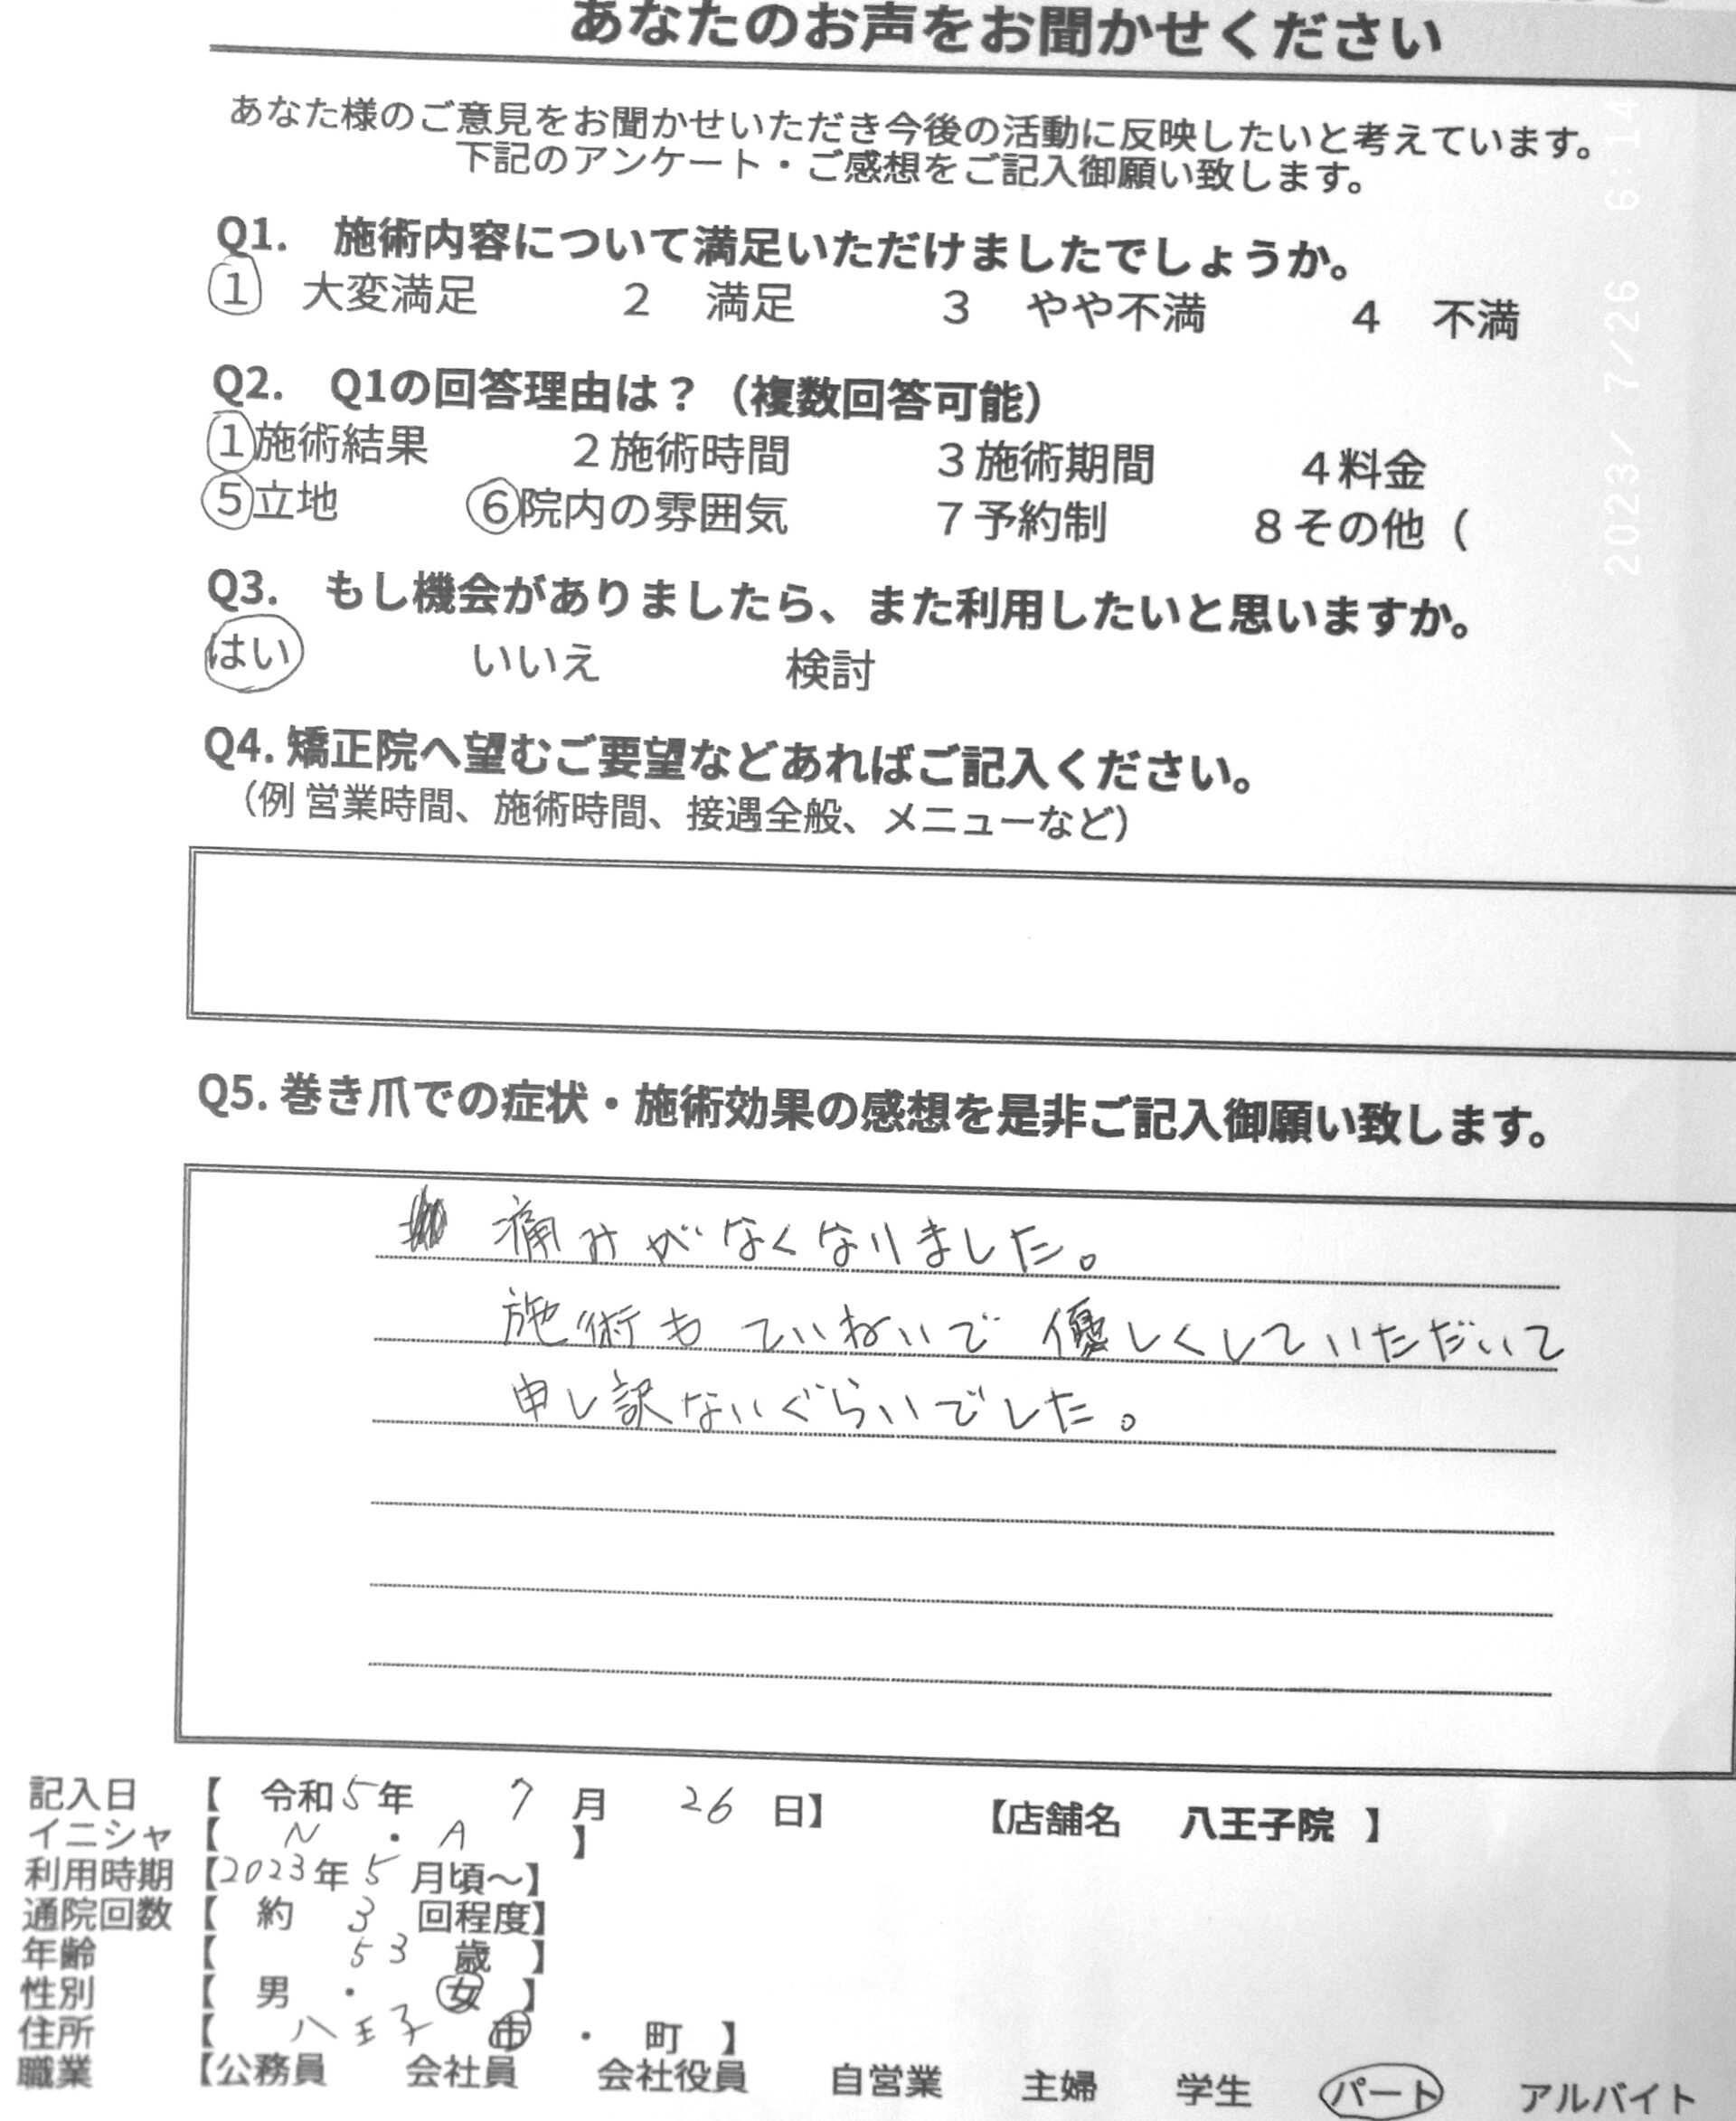 あなたのお声をお聞かせください
あなた様のご意見をお聞かせいただき今後の活動に反映したいと考えています。
下記のアンケート・ご感想をご記入御願い致します。
Q1.　施術内容について満足いただけましたでしょうか。
1　大変満足　2　満足　3　やや不満　4　不満
Q2.　Q1の回答理由は？（複数回答可能）
1施術結果　2施術時間　3施術期間　4料金
5立地　6院内の雰囲気　7予約制　8その他（
Q3.　もし機会がありましたら、また利用したいと思いますか。
はい　いいえ　検討
Q4. 矯正院へ望むご要望などあればご記入ください。
（例 営業時間、施術時間、接遇全般、メニューなど）
Q5. 巻き爪での症状・施術効果の感想を是非ご記入御願い致します。
痛みがなくなりました。
施術もていねいで優しくしていただいて
申し訳ないぐらいでした。
記入日　【　令和5年　7月　26日】　【店舗名　八王子院　】
イニシャ　【　N・A　】
利用時期　【2023年5月頃〜】
通院回数　【　約　3　回程度】
年齢　【　53　歳　】
性別　【　男　・　女　】
住所　【　八王子　市　・　町　】
職業　【公務員　会社員　会社役員　自営業　主婦　学生　パート　アルバイト
2023/ 7/26 6:14